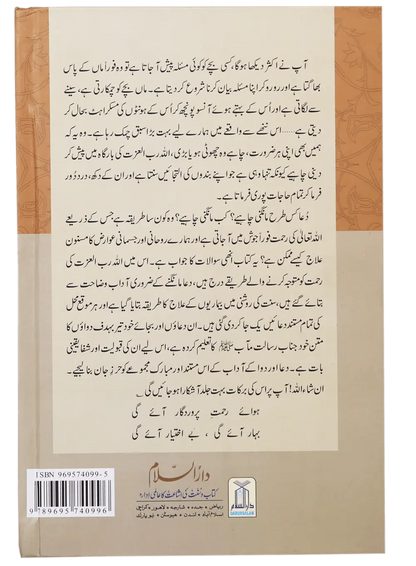 آپ نے اکثر دیکھا ہوگا، کسی بچے کو کوئی مسئلہ پیش آ جاتا ہے تو وہ فوراً ماں کے پاس
بھاگتا ہے اور رو رو کر اپنا مسئلہ بیان کرنا شروع کر دیتا ہے۔ ماں بچے کو چمکارتی ہے، سینے
سے لگاتی ہے اور اُس کے بہتے ہوئے آنسو پونچھ کر اُس کے ہونٹوں کی مسکراہٹ بحال کر
دیتی ہے ...... اس ننھے سے واقعے میں ہمارے لیے بہت بڑا سبق چمک رہا ہے۔ وہ یہ کہ
ہمیں بھی اپنی ہر ضرورت، چاہے وہ چھوٹی ہو یا بڑی، اللہ رب العزت کی بارگاہ میں پیش کر
دینی چاہیے کیونکہ تنہا وہی ہے جو اپنے بندوں کی التجائیں سنتا ہے اور ان کے دکھ، درد دُور
فرما کر تمام حاجات پوری فرماتا ہے۔
دُعا کس طرح مانگنی چاہیے؟ کب مانگنی چاہیے؟ وہ کون سا طریقہ ہے جس کے ذریعے
اللہ تعالیٰ کی رحمت فوراً جوش میں آ جاتی ہے اور ہمارے روحانی اور جسمانی عوارض کا مسنون
علاج کیسے ممکن ہے؟ یہ کتاب انھی سوالات کا جواب ہے۔ اس میں اللہ رب العزت کی
رحمت کو متوجہ کرنے والے طریقے درج ہیں، دعا مانگنے کے ضروری آداب وضاحت سے
بتائے گئے ہیں، سنت کی روشنی میں بیماریوں کے علاج کا طریقہ بتایا گیا ہے اور ہر موقع محل
کی تمام مستند دعائیں یک جا کر دی گئی ہیں۔ ان دعاؤں اور بجائے خود تیر بہدف دواؤں کا
متن خود جناب رسالت مآب ﷺ کا تعلیم کردہ ہے، اس لیے ان کی قبولیت اور شفا یقینی
بات ہے۔ دعا و دوا کے آداب کے اس مستند اور مبارک مجموعے کو حرزِ جان بنا لیجیے۔
ان شاء اللہ! آپ پر اس کی برکات بہت جلد آشکارا ہو جائیں گی ۔
ہوائے رحمت پروردگار آئے گی
بہار آئے گی ، بے اختیار آئے گی
دارالسلام
کتاب و سنت کی اشاعت کا عالمی ادارہ
ریاض • جدہ • شارجہ • لاہور • کراچی
اسلام آباد • لندن • ہیوسٹن • نیویارک
دارالسلام
DARUSSALAM
ISBN 969574099-5
9 789695 740996